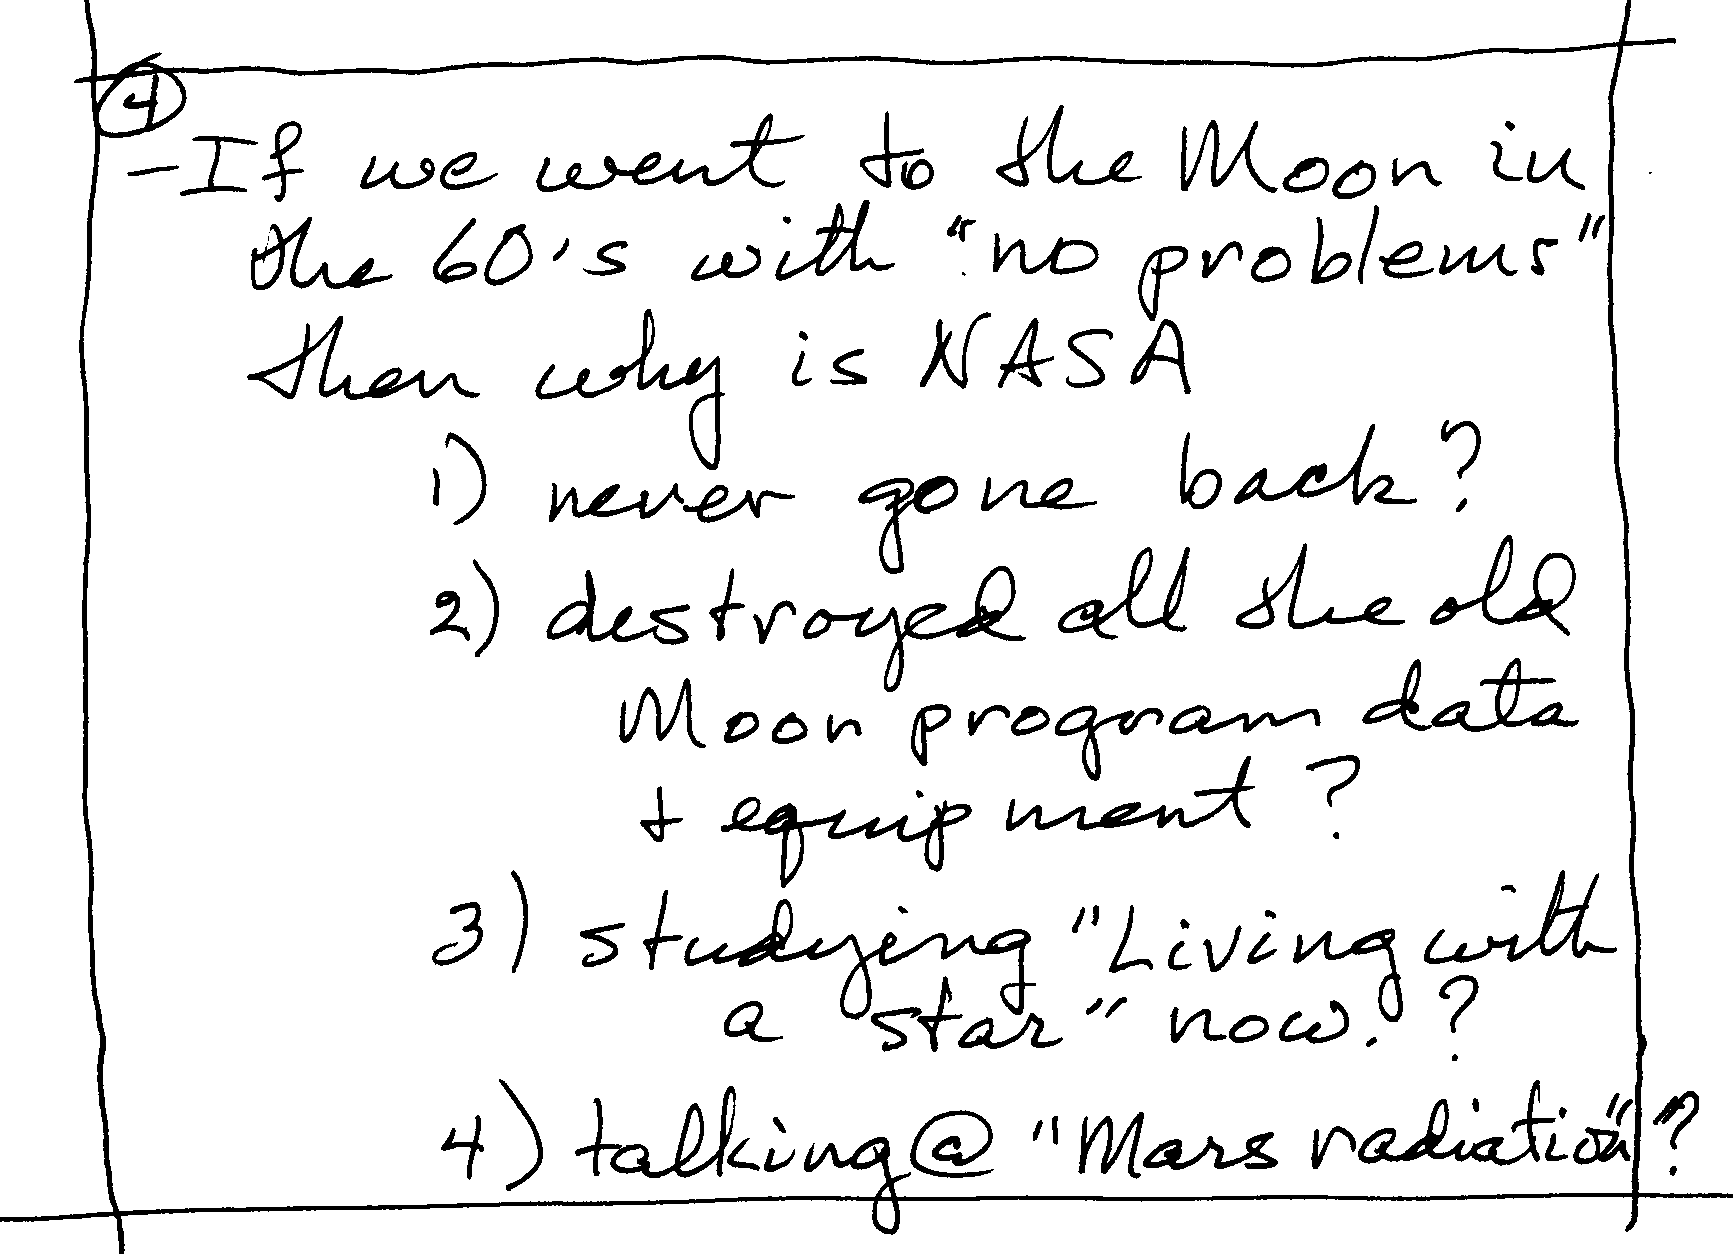 4
- If we went to the Moon in
the 60's with "no problems"
then why is NASA
1) never gone back?
2) destroyed all the old
Moon program data
+ equipment?
3) studying "Living with
a star" now.?
4) talking @ "Mars radiation"?